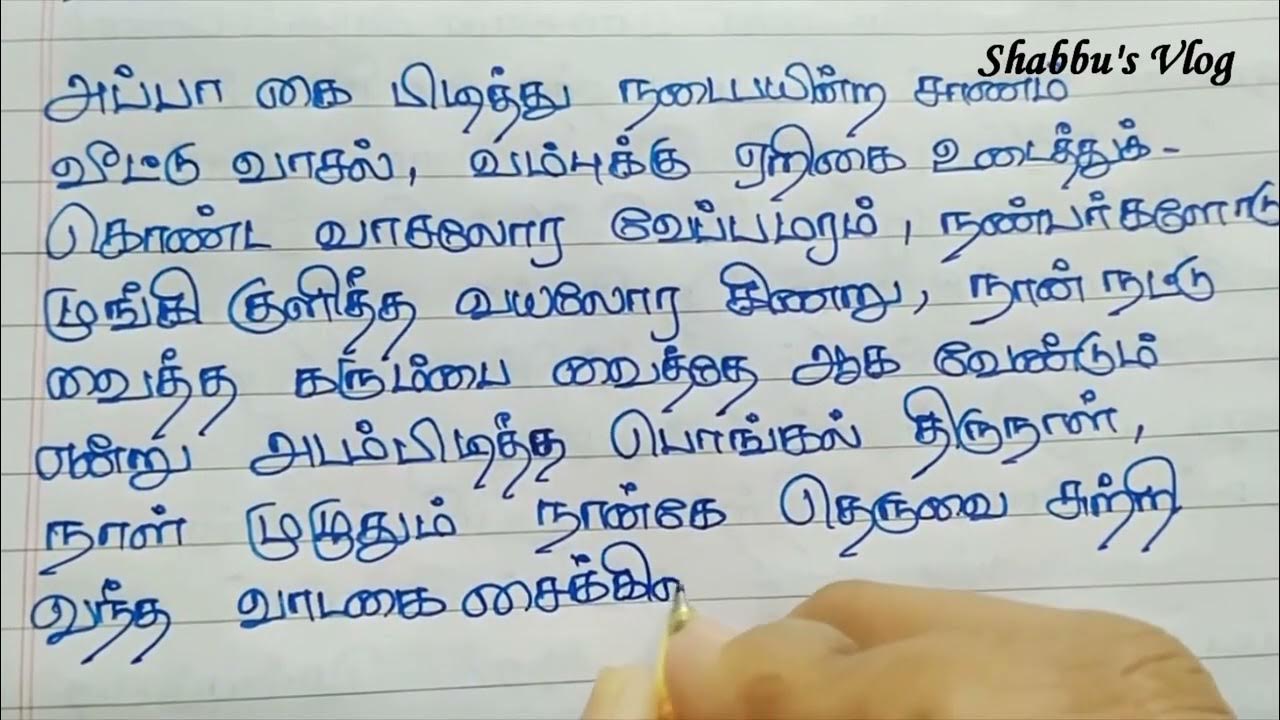 Shabbu's Vlog
அப்பா கை பிடித்து நடைபயின்ற சாணம்
வீட்டு வாசல், வம்புக்கு ஏறிகை உடைத்துக்-
கொண்ட வாசலோர வேப்பமரம், நண்பர்களோடு
முங்கி குளித்த வயலோர கிணறு, நான் நட்டு
வைத்த கரும்பை வைத்தே ஆக வேண்டும்
என்று அடம்பிடித்த பொங்கல் திருநாள்,
நாள் முழுதும் நான்கே தெருவை சுற்றி
வந்த வாடகை சைக்கி